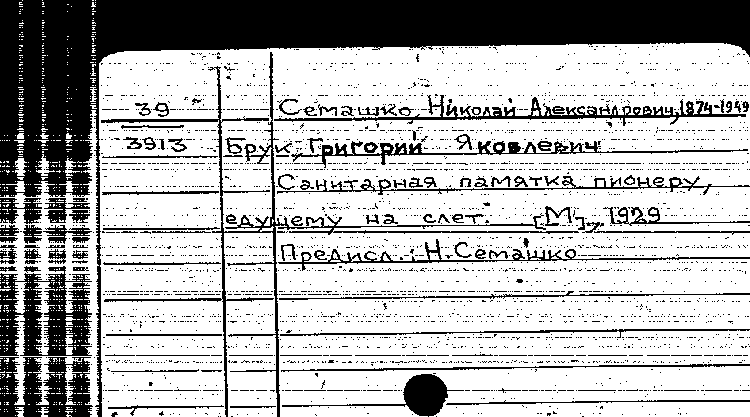 39
3913
Семашко, Николай Александрович, 1874-1949
Брук, Григорий Яковлевич
Санитарная памятка пионеру,
едущему на слет. [М], 1929
Предисл.: Н. Семашко